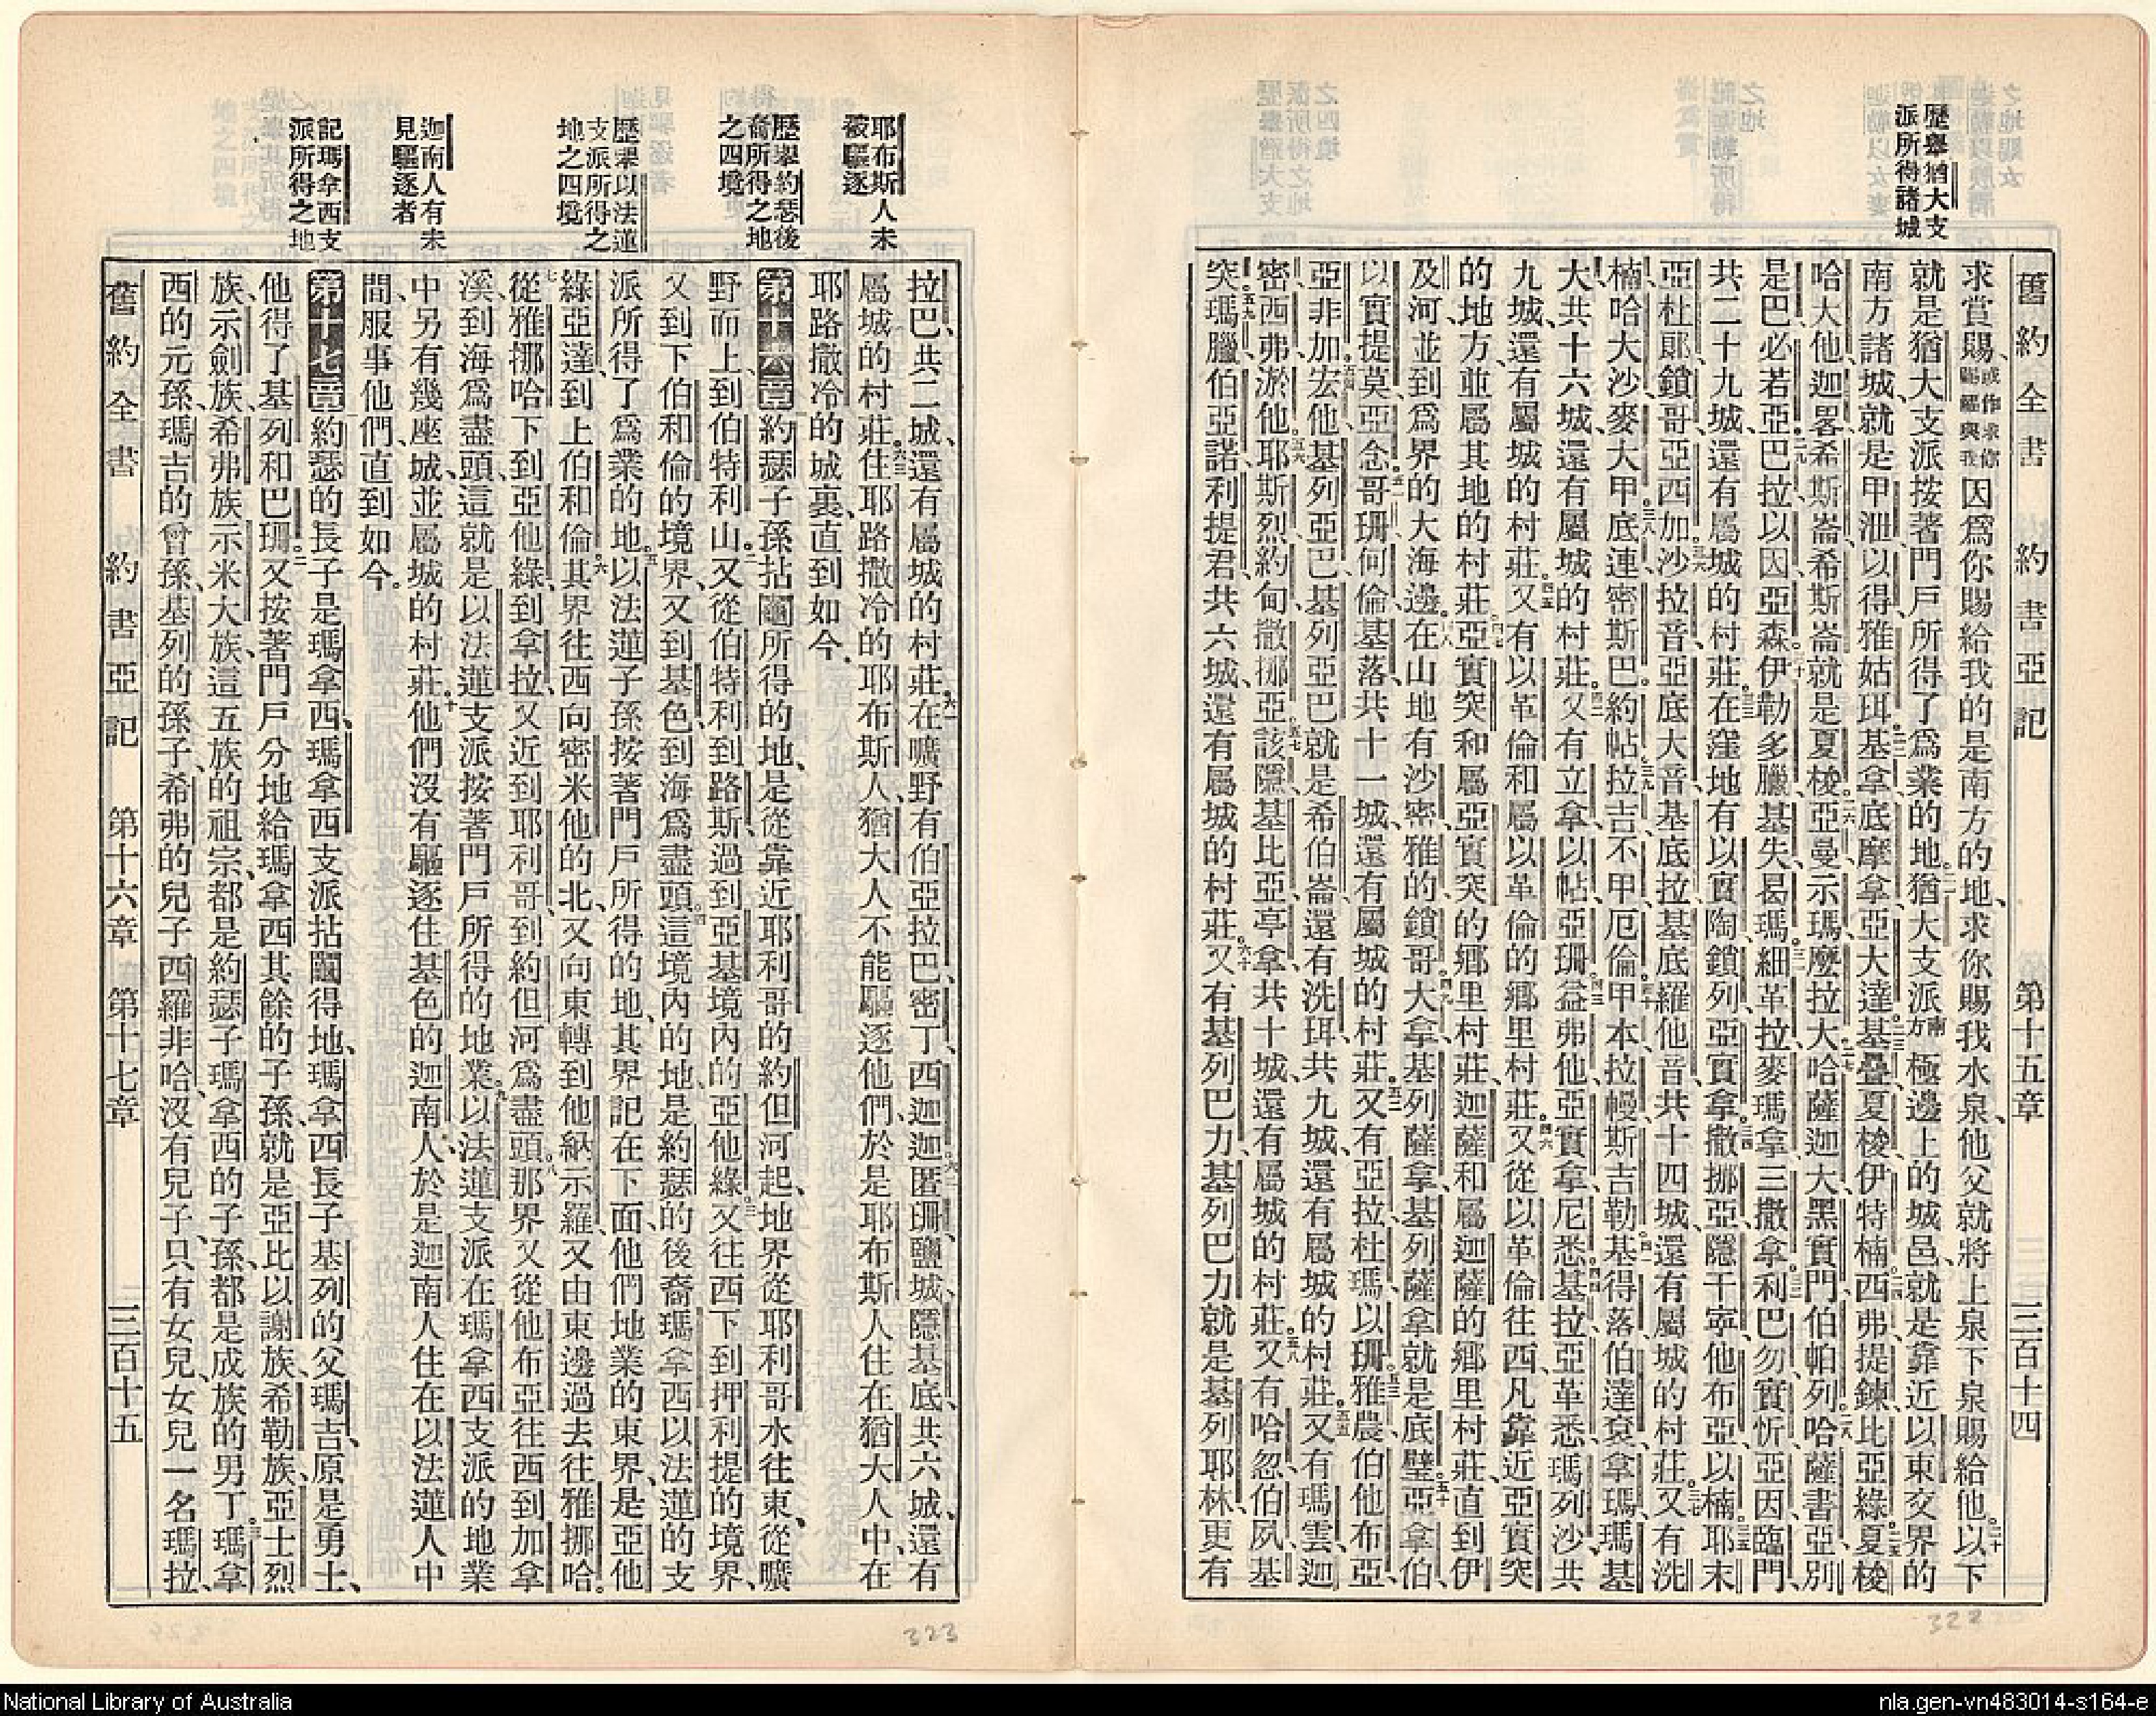 歷舉猶大支
派所得諸城
舊約全書 約書亞記 第十五章 三百十四
求賞賜、或作求你賜羅與我因爲你賜給我的是南方的地、求你賜我水泉、他父就將上泉下泉賜給他。二十以下
就是猶大支派按著門戶所得了爲業的地。二一猶大支派南方極邊上的城邑、就是靠近以東交界的
南方諸城、就是甲泄、以得、雅姑珥、二二基拿、底摩拿、亞大達、二三基疊、夏梭、伊特楠、二四西弗、提鍊、比亞綠、二五夏梭
哈大他、迦畧希斯崙、希斯崙就是夏梭、二六亞曼、示瑪、麼拉大、二七哈薩迦大、黑實門、伯帕列、二八哈薩書亞、別
是巴、必若亞、二九巴拉、以因、亞森、三十伊勒多臘、基失、曷瑪、三一細革拉、麥瑪拿、三撒拿、三二利巴勿、實忻、亞因、臨門、
共二十九城、還有屬城的村莊。三三在窪地有以實陶、鎖列、亞實拿、三四撒挪亞、隱干寜、他布亞、以楠、三五耶末、
亞杜郞、鎖哥、亞西加、三六沙拉音、亞底大音、基底拉、基底羅他音、共十四城、還有屬城的村莊。三七又有洗
楠、哈大沙、麥大甲、三八底連、密斯巴、約帖、三九拉吉、不甲、厄倫、四十甲本、拉幔、斯吉勒、四一基得落、伯達袞、拿瑪、瑪基
大、共十六城、還有屬城的村莊。四二又有立拿、以帖、亞珊、四三益弗他、亞實拿、尼悉、四四基拉、亞革悉、瑪列沙、共
九城、還有屬城的村莊。四五又有以革倫和屬以革倫的鄕里村莊。四六又從以革倫往西、凡靠近亞實突
的地方、並屬其地的村莊。四七亞實突和屬亞實突的鄕里村莊、迦薩和屬迦薩的鄕里村莊、直到伊
及河、並到爲界的大海邊。四八在山地有沙密、雅的、鎖哥、四九大拿、基列薩拿、基列薩拿就是底璧、五十亞拿伯、
以實提莫、亞念、五一哥珊、何倫、基落、共十一城、還有屬城的村莊。五二又有亞拉、杜瑪、以珊、五三雅農、伯他布亞、
亞非加、五四宏他、基列亞巴、基列亞巴就是希伯崙、還有洗珥、共九城、還有屬城的村莊。五五又有瑪雲、迦
密、西弗、淤他、五六耶斯烈、約甸、撒挪亞、五七該隱、基比亞、亭拿、共十城、還有屬城的村莊。五八又有哈忽、伯夙、基
突、五九瑪臘、伯亞諾、利提君、共六城、還有屬城的村莊。六十又有基列巴力、基列巴力就是基列耶林、更有
322
耶布斯人未
被驅逐
歷舉約瑟後
裔所得之地
之四境
歷舉以法蓮
支派所得之
地之四境
迦南人有未
見驅逐者
記瑪拿西支
派所得之地
拉巴、共二城、還有屬城的村莊。六一在曠野有伯亞拉巴、密丁、西迦迦、六二匿珊、鹽城、隱基底、共六城、還有
屬城的村莊。六三住耶路撒冷的耶布斯人、猶大人不能驅逐他們、於是耶布斯人住在猶大人中、在
耶路撒冷的城裏、直到如今、
第十六章約瑟子孫拈鬮所得的地、是從靠近耶利哥的約但河起、地界從耶利哥水往東、從曠
野而上、到伯特利山。二又從伯特利到路斯、過到亞基境內的亞他綠。三又往西下到押利提的境界、
又到下伯和倫的境界、又到基色、到海爲盡頭。四這境內的地、是約瑟的後裔瑪拿西以法蓮的支
派所得了爲業的地。五以法蓮子孫按著門戶所得的地、其界記在下面、他們地業的東界、是亞他
綠亞達、到上伯和倫。六其界往西向密米他的北、又向東轉到他納示羅、又由東邊過去往雅挪哈。
七從雅挪哈下到亞他綠、到拿拉、又近到耶利哥、到約但河爲盡頭。八那界又從他布亞往西、到加拿
溪、到海爲盡頭、這就是以法蓮支派按著門戶所得的地業。九以法蓮支派在瑪拿西支派的地業
中、另有幾座城、並屬城的村莊。十他們沒有驅逐住基色的迦南人、於是迦南人住在以法蓮人中
間、服事他們、直到如今。
第十七章約瑟的長子是瑪拿西、瑪拿西支派拈鬮得地、瑪拿西長子基列的父瑪吉、原是勇士、
他得了基列和巴珊。二又按著門戶分地給瑪拿西其餘的子孫、就是亞比以謝族、希勒族、亞士烈
族、示劍族、希弗族、示米大族、這五族的祖宗、都是約瑟子瑪拿西的子孫、都是成族的男丁。三瑪拿
西的元孫、瑪吉的曾孫、基列的孫子、希弗的兒子西羅非哈、沒有兒子、只有女兒、女兒一名瑪拉、
舊約全書 約書亞記 第十六章 第十七章 三百十五
323
National Library of Australia
nla.gen-vn483014-s164-e